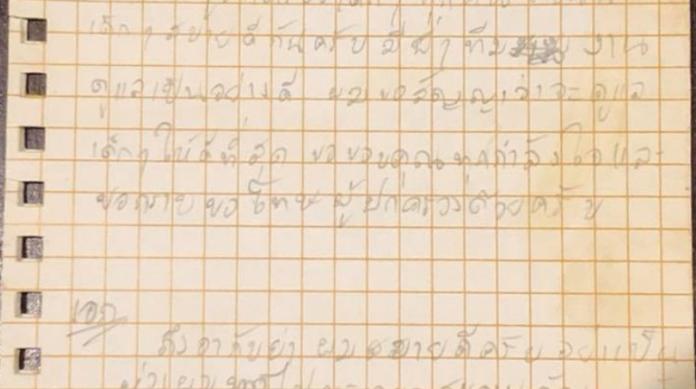 เด็กๆ สบายดีกันครับ มีพี่ๆ ทีม งาน
ดูแลเป็นอย่างดี ผมขอสัญญาว่าจะดูแล
เด็กๆ ให้ดีที่สุด ขอขอบคุณทุกกำลังใจ และ
ขอกราบขอโทษ ผู้ปกครองด้วยครับ
เอก
ถึงอากับย่า ผมสบายดีครับ อย่าเป็น
ห่วงผม